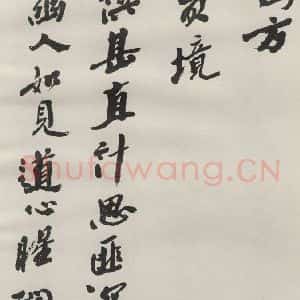 方
境
甚直計思匪深
幽人如見道心醒
Shufawang.CN